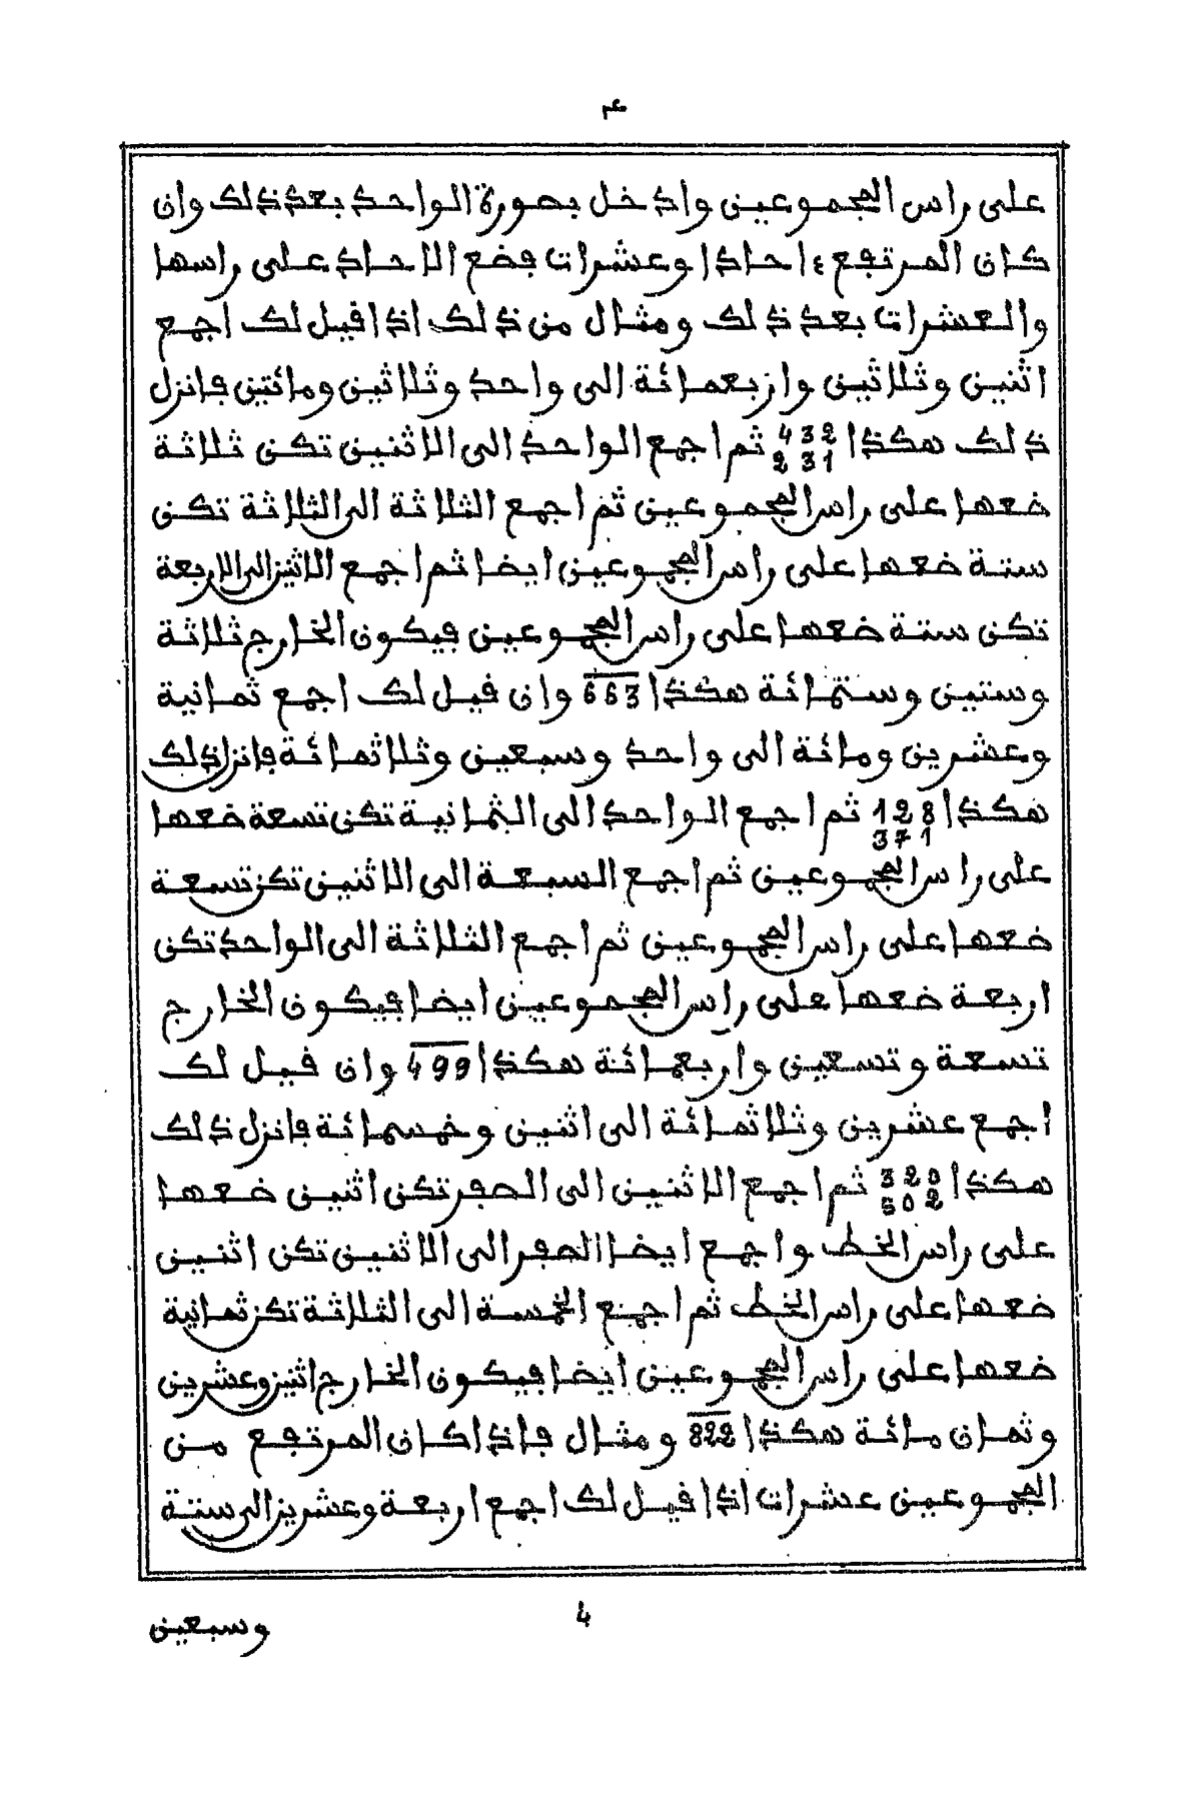 ٤
على راس المجموعين وادخل بصورة الواحد بعد ذلك وان
كان المرتفع ءاحادا وعشرات فضع الاحاد على راسها
والعشرات بعد ذلك ومثال من ذلك اذا قيل لك اجمع
اثنين وثلاثين واربعمائة الى واحد وثلاثين ومائتين فانزل
ذلك هكذا 432 ثم اجمع الواحد الى الاثنين تكن ثلاثة
231
ضعها على راس المجموعين ثم اجمع الثلاثة الى الثلاثة تكن
ستة ضعها على راس المجموعين ايضا ثم اجمع الاثنين الى الاربعة
تكن ستة ضعها على راس المجموعين فيكون الخارج ثلاثة
وستين وستمائة هكذا 663 وان قيل لك اجمع ثمانية
وعشرين ومائة الى واحد وسبعين وثلاثمائة فانزل ذلك
هكذا 128 ثم اجمع الواحد الى الثمانية تكن تسعة ضعها
371
على راس المجموعين ثم اجمع السبعة الى الاثنين تكن تسعة
ضعها على راس المجموعين ثم اجمع الثلاثة الى الواحد تكن
اربعة ضعها على راس المجموعين ايضا فيكون الخارج
تسعة وتسعين واربعمائة هكذا 499 وان قيل لك
اجمع عشرين وثلاثمائة الى اثنين وخمسمائة فانزل ذلك
هكذا 320 ثم اجمع الاثنين الى الصفر تكن اثنين ضعها
502
على راس الخط واجمع ايضا الصفر الى الاثنين تكن اثنين
ضعها على راس الخط ثم اجمع الخمسة الى الثلاثة تكن ثمانية
ضعها على راس المجموعين ايضا فيكون الخارج اثنين وعشرين
وثمان مائة هكذا 822 ومثال فاذا كان المرتفع من
المجموعين عشرات اذا قيل لك اجمع اربعة وعشرين الى ستة
4
وسبعين